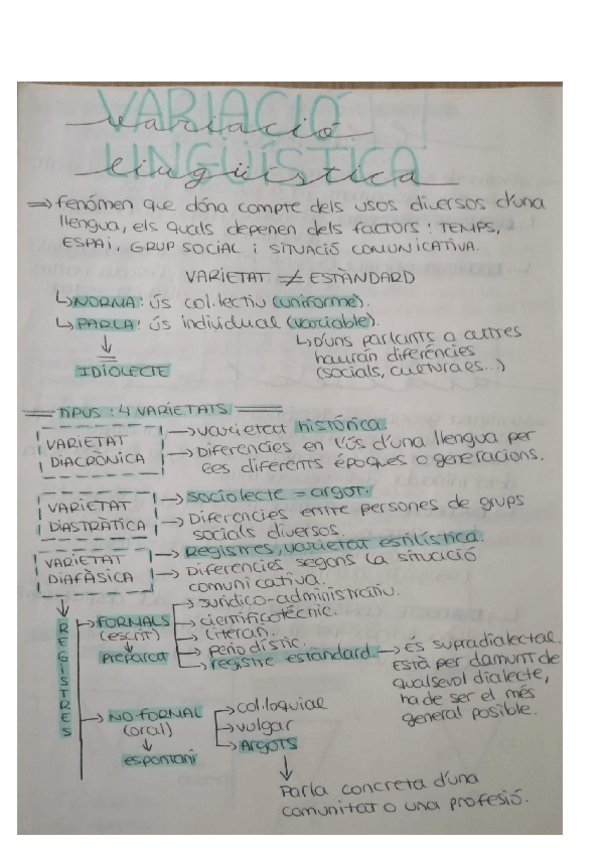 VARIACIÓ
variació
LINGÜÍSTICA
lingüística
⇒ fenómen que dóna compte dels usos diversos d'una
llengua, els quals depenen dels factors: TEMPS,
ESPAI, GRUP SOCIAL i SITUACIÓ COMUNICATIVA.
VARIETAT ≠ ESTÀNDARD
↳ NORMA: ús col.lectiu (uniforme).
↳ PARLA: ús individual (variable).
↳ D'uns parlants a altres
hauràn diferències
(socials, culturals...)
↓
IDIOLECTE
TIPUS: 4 VARIETATS
VARIETAT
DIACRÒNICA
→ varietat històrica.
→ Diferències en l'ús d'una llengua per
les diferents èpoques o generacions.
VARIETAT
DIASTRÀTICA
→ sociolecte = argot.
→ Diferències entre persones de grups
socials diversos.
VARIETAT
DIAFÀSICA
→ Registres, varietat estilística.
→ Diferències segons la situació
comunicativa.
REGISTRES
→ FORMALS
(escrit)
↓
Preparat
→ jurídico-administratiu.
→ científicotècnic.
→ literari.
→ periodístic.
→ registre estàndard. → És supradialectal.
Està per damunt de
qualsevol dialecte,
ha de ser el més
general possible.
→ NO FORMAL
(oral)
↓
espontani
→ col.loquial
→ vulgar
→ ARGOTS
↓
Parla concreta d'una
comunitat o una profesió.